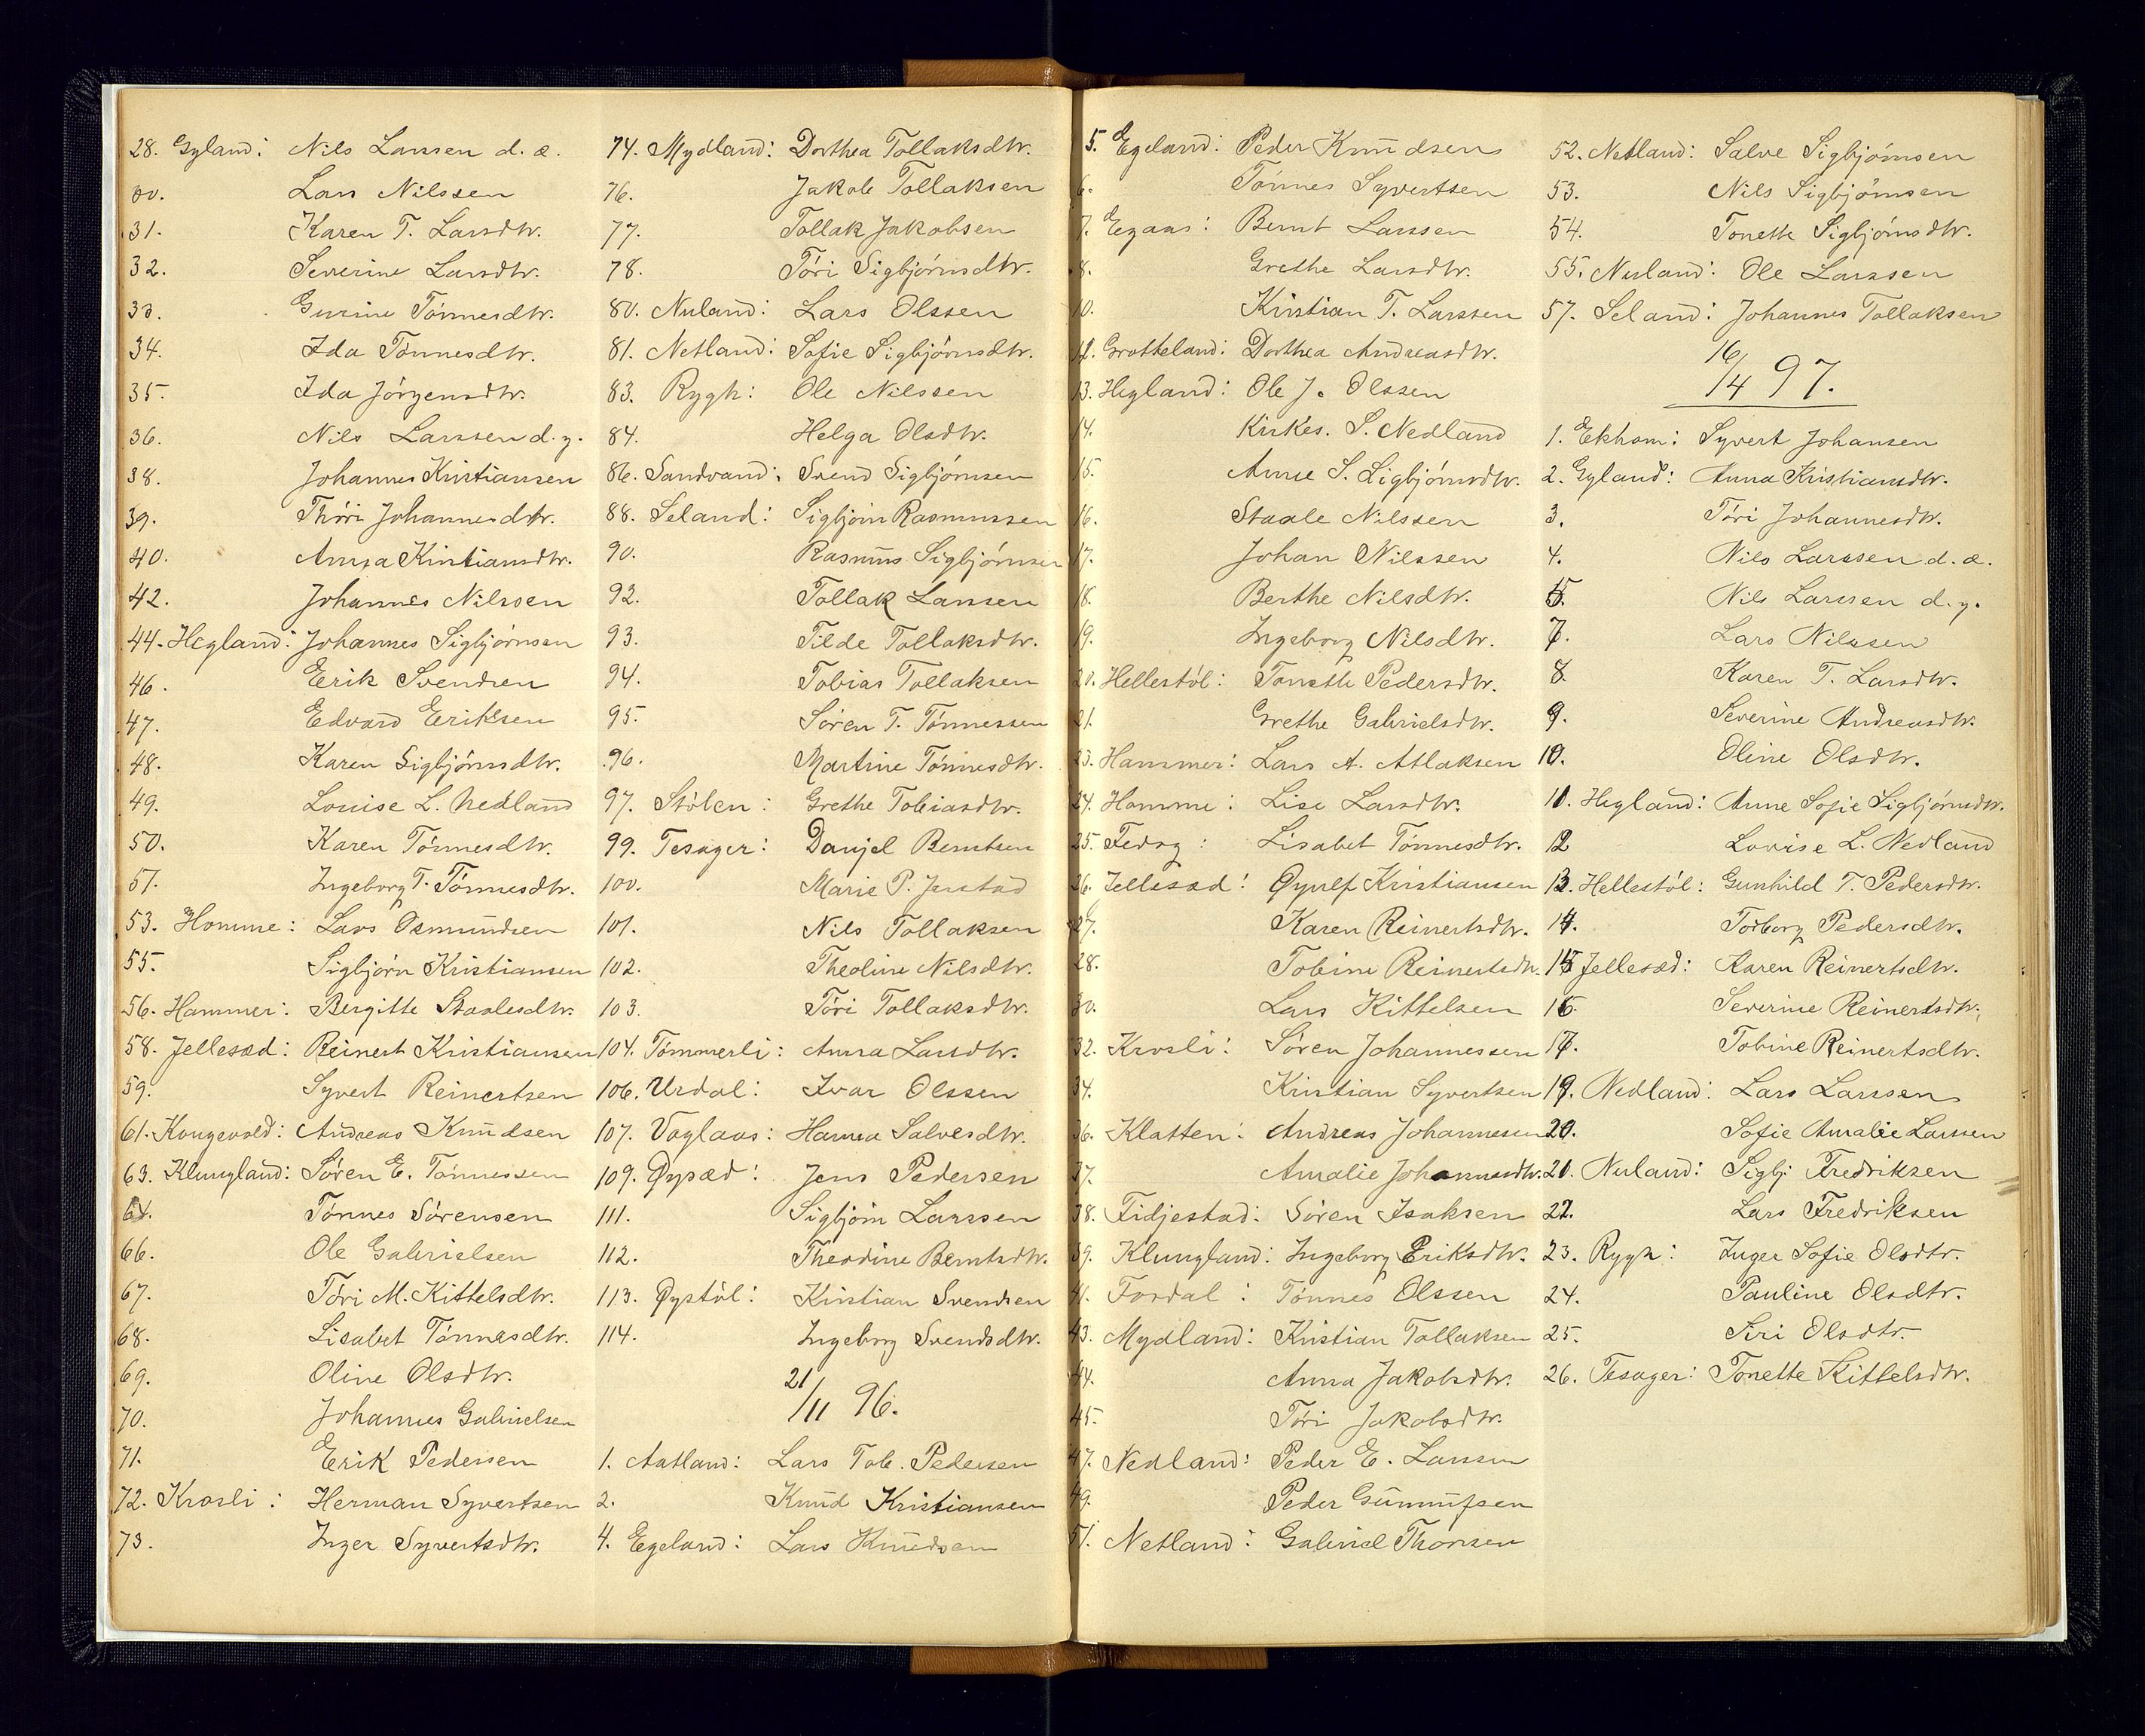 28. Gyland: Nils Larssen d. æ.
30. Lars Nilssen
31. Karen T. Larsdtr.
32. Severine Larsdtr.
33. Gurine Tönnesdtr.
34. Ida Tönnesdtr.
35. Ida Jörgensdtr.
36. Nils Larssen d. y.
38. Johannes Kristiansen
39. Thöri Johannesdtr.
40. Anna Kristiansdtr.
42. Johannes Nilssen
44. Hegland: Johannes Sigbjörnsen
46. Eerik Svendsen
47. Edvard Eeriksen
48. Karen Sigbjörnsdtr.
49. Louise L. Nedland
50. Karen Tönnesdtr.
51. Ingeborg T. Tönnesdtr.
53. Homme: Lars Osmundsen
55. Sigbjörn Kristiansen
56. Hammer: Bergitte Staalesdtr.
58. Jellesæd: Reinert Kristiansen
59. Syvert Reinertsen
61. Kongevold: Andreas Knudsen
63. Klungland: Sören E. Tönnessen
64. Tönnes Sörensen
66. Ole Gabrielsen
67. Töri M. Kittelsdtr.
68. Lisabet Tönnesdtr.
69. Oline Olsdtr.
70. Johannes Gabrielsen
71. Erik Pedersen
72. Krosli: Herman Syvertsen
73. Inger Syvertsdtr.
74. Mydland: Dorthea Tollaksdtr.
76. Jakob Tollaksen
77. Tollak Jakobsen
78. Töri Sigbjörnsdtr.
80. Nuland: Lars Olssen
81. Netland: Sofie Sigbjörnsdtr.
83. Rygh: Ole Nilssen
84. Helga Olsdtr.
86. Sandvand: Svend Sigbjörnsen
88. Seland: Sigbjörn Rasmussen
90. Rasmus Sigbjörnsen
92. Tollak Larssen
93. Tilde Tollaksdtr.
94. Tobias Tollaksen
95. Sören T. Tönnessen
96. Martine Tönnesdtr.
97. Stölen: Grethe Tobiasdtr.
99. Tesager: Danjel Berntsen
100. Marie P. Jerstad
101. Nils Tollaksen
102. Theoline Nilsdtr.
103. Töri Tollaksdtr.
104. Tömmerli: Anna Larsdtr.
106. Urdal: Ivar Olssen
107. Vaglaas: Hanna Salvesdtr.
109. Øysæd: Jens Pedersen
111. Sigbjörn Larssen
112. Theodine Berntsdtr.
113. Øystöl: Kristian Svendsen
114. Ingeborg Svendsdtr.
21/11 96.
1. Aatland: Lars Tob. Pedersen
2. Knud Kristiansen
4. Egeland: Lars Knudsen
5. Egeland: Peder Knudsen
6. Tönnes Syvertsen
7. Egaas: Bernt Larssen
8. Grethe Larsdtr.
10. Kristian T. Larssen
12. Grotteland: Dorthea Andreasdtr.
13. Hegland: Ole J. Olssen
14. Kirkes. S. Nedland
15. Anne S. Sigbjörnsdtr.
16. Staale Nilssen
17. Johan Nilssen
18. Berthe Nilsdtr.
19. Ingeborg Nilsdtr.
20. Hellestöl: Tonette Pedersdtr.
21. Grethe Gabrielsdtr.
23. Hammer: Lars A. Atlaksen
24. Homme: Lise Larsdtr.
25. Fedog: Lisabet Tönnesdtr.
26. Jellesæd: Øyulf Kristiansen
27. Karen Reinertsdtr.
28. Tobine Reinertsdtr.
30. Lars Kittelsen
32. Krosli: Sören Johannessen
34. Kristian Syvertsen
36. Klatten: Andreas Johannesen
37. Amalie Johannesdtr.
38. Fidjestad: Sören Isaksen
39. Klungland: Ingeborg Eriksdtr.
41. Fordal: Tönnes Olssen
43. Mydland: Kristian Tollaksen
44. Anna Jakobsdtr.
45. Töri Jakobsdtr.
47. Nedland: Peder E. Larssen
49. Peder Gunnufsen
51. Netland: Gabriel Thorsen
52. Netland: Salve Sigbjörnsen
53. Nils Sigbjörnsen
54. Tonette Sigbjörnsdtr.
55. Nuland: Ole Larssen
57. Seland: Johannes Tollaksen
16/14 97.
1. Ekhom: Syvert Johansen
2. Gyland: Anna Kristiansdtr.
3. Töri Johannesdtr.
4. Nils Larssen d. æ.
5. Nils Larssen d. y.
7. Lars Nilssen
8. Karen T. Larsdtr.
9. Severine Andreasdtr.
10. Oline Olsdtr.
11. Hegland: Anne Sofie Sigbjörnsdtr.
12 Lovise L. Nedland
13. Hellestöl: Gunhild T. Pedersdtr.
14. Torborg Pedersdtr.
15 Jellesæd: Karen Reinertsdtr.
16. Severine Reinertsdtr.
17. Tobine Reinertsdtr.
19. Nedland: Lars Larssen
20. Sofie Amalie Larssen
21. Nuland: Sigbj Fredriksen
22. Lars Fredriksen
23. Rygh: Inger Sofie Olsdtr.
24. Pauline Olsdtr.
25. Siri Olsdtr.
26. Tesager: Tonette Kittelsdtr.